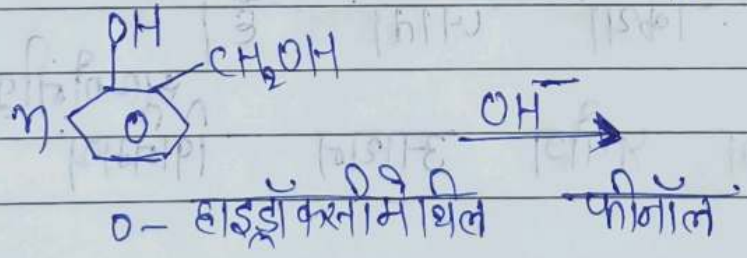 OH
CH₂OH
n. O OH⁻
o- हाइड्रॉक्सीमेथिल फीनॉल